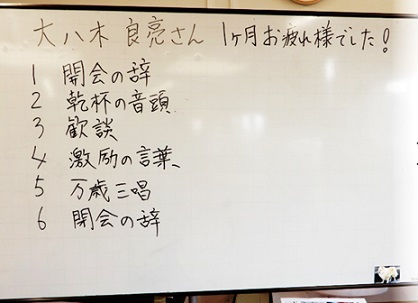 大八木良亮さん 1ヶ月お疲れ様でした!
1 開会の辞
2 乾杯の音頭
3 歓談
4 激励の言葉、
5 万歳三唱
6 閉会の辞